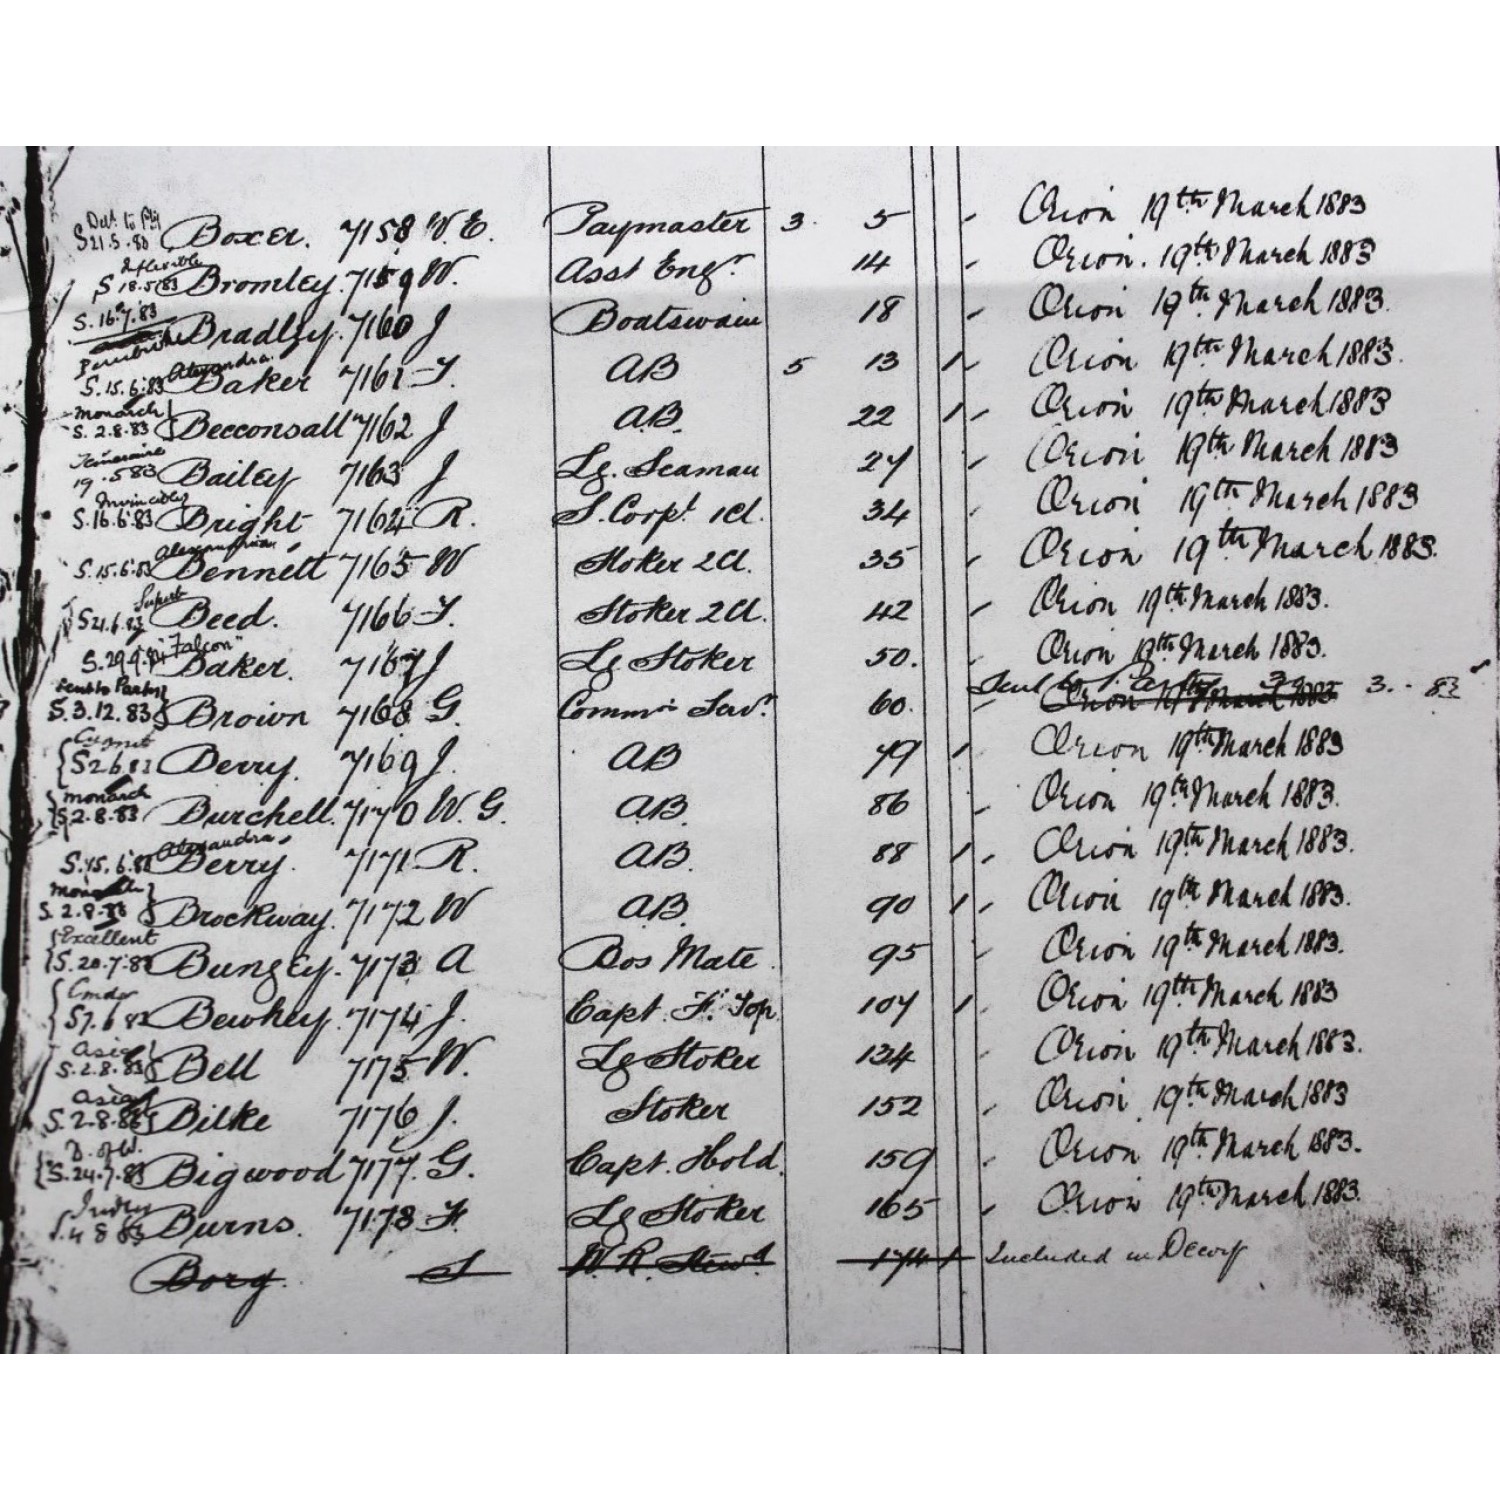 Del. to
S 21.5.83 Boxer. 7158 W. E. Paymaster 3. 5 - Orion 19th March 1883
Inflexible
S 18.5.83 Bromley. 7159 W. Asst Engr. 14 - Orion. 19th March 1883
S. 16.7.83 Bradley. 7160 J Boatswain 18 - Orion 19th March 1883.
Pembroke
S. 15.6.83 Alexandra. Baker 7161 F. AB 5 13 1 - Orion 19th March 1883.
Monarch
S. 2.8.83 Becconsall 7162 J AB. 22 1 - Orion 19th March 1883
Temeraire
19.5.83 Bailey 7163 J Lg. Seaman 27 - Orion 19th March 1883
Invincible
S. 16.6.83 Bright 7164 R. S. Corpl. 1Cl. 34 - Orion 19th March 1883
S. 15.6.83 Bennett 7165 W Stoker 2Cl. 35 - Orion 19th March 1883.
Superb
S 21.6.83 Beed. 7166 F. Stoker 2Cl. 42 - Orion 19th March 1883.
S. 29.9. "Falcon" Baker. 7167 J Lg Stoker 50. - Orion 19th March 1883.
Sent to Parkes
S. 3.12.83 Brown 7168 G. Commn Servt. 60. - Orion 19th March 1883 Sent to 3. - 83
Cygnet
S 2.6.83 Berry. 7169 J. AB 79 1 - Orion 19th March 1883
Monarch
S 2.8.83 Burchell. 7170 W. G. AB. 86 - Orion 19th March 1883.
S. 15.6.83 Alexandra Berry. 7171 R. AB. 88 1 - Orion 19th March 1883.
Monarch
S. 2.8.83 Brockway. 7172 W AB. 90 1 - Orion 19th March 1883.
Excellent
S. 20.7.83 Bungey. 7173 A Bos Mate 95 - Orion 19th March 1883.
S 7.6.83 Bewhey. 7174 J. Capt. F. Top. 107 1 - Orion 19th March 1883
Asia
S. 2.8.83 Bell 7175 W. Lg Stoker 134 - Orion 19th March 1883.
Asia
S. 2.8.83 Bilke 7176 J. Stoker 152 - Orion 19th March 1883
D. of W.
S. 24.7.83 Bigwood 7177. G. Capt. Hold. 159 - Orion 19th March 1883.
S. 4 8 83 Burns. 7178 F. Lg Stoker 165 - Orion 19th March 1883.
Borg. S W. R. Stewd 174 1 Included in Decoy